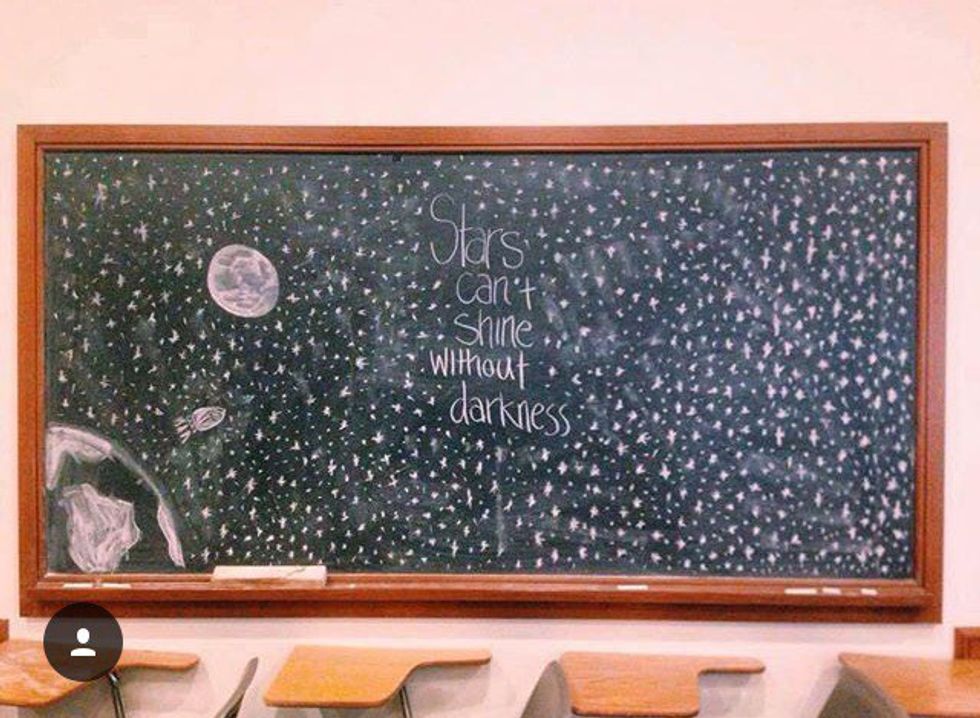 Stars
can't
shine
without
darkness